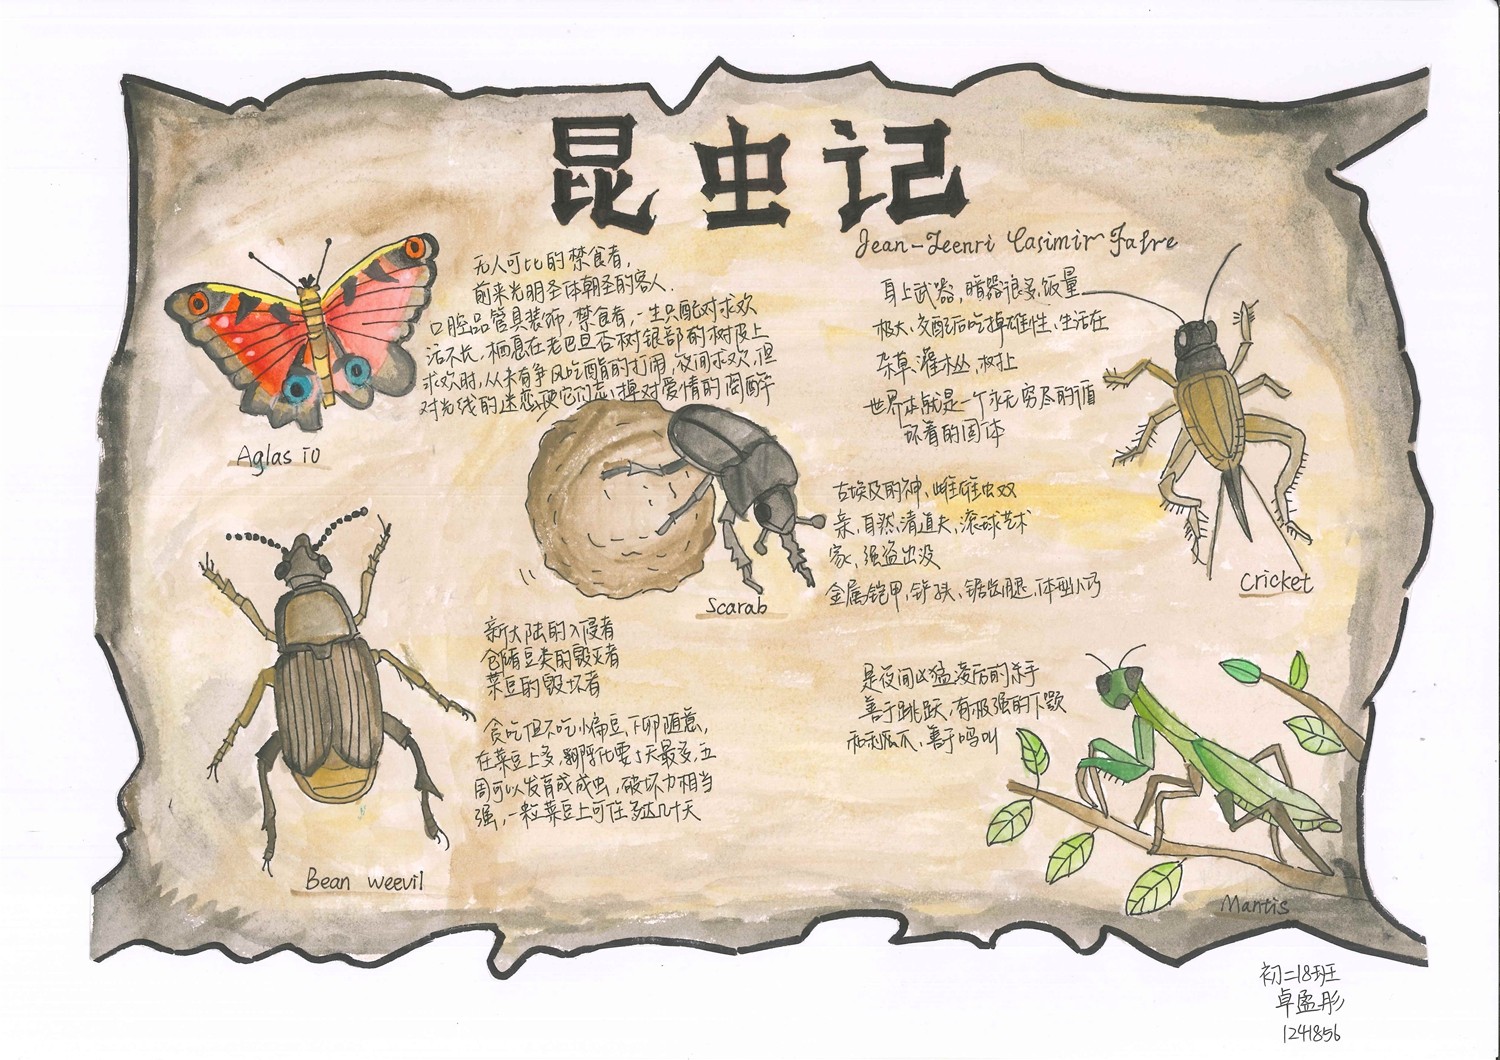 昆虫记
Jean-Jeenri Casimir Fafre
无人可比的禁食者,
前来光明圣体朝圣的客人.
口腔品管具装饰,禁食者,一生只配对求欢
活不长,栖息在老巴旦杏树银部的树皮上
求欢时,从未有争风吃醋的打闹,夜间求欢,但
对光线的迷恋使它们忘掉对爱情的陶醉
Aglas io
身上武器,暗器很多,饭量
极大、交配后吃掉雄性、生活在
杂草、灌木丛、树上
世界本就是一个永无穷尽的循
环着的固体
Cricket
古埃及的神、雌雄虫双
亲、自然清道夫、滚球艺术
家、强盗出没
金属铠甲、铲头、锯齿腿、体型小巧
Scarab
新大陆的入侵者
仓储豆类的毁灭者
菜豆的毁坏者
贪吃但不吃小扁豆、下卵随意,
在菜豆上多,孵化要5天最多,五
周可以发育成成虫,破坏力相当
强,一粒菜豆上可住多达几十天
Bean weevil
是夜间凶猛凌厉的杀手
善于跳跃,有极强的下颚
和利爪、善于鸣叫
Mantis
初二18班
卓孟彤
1241856